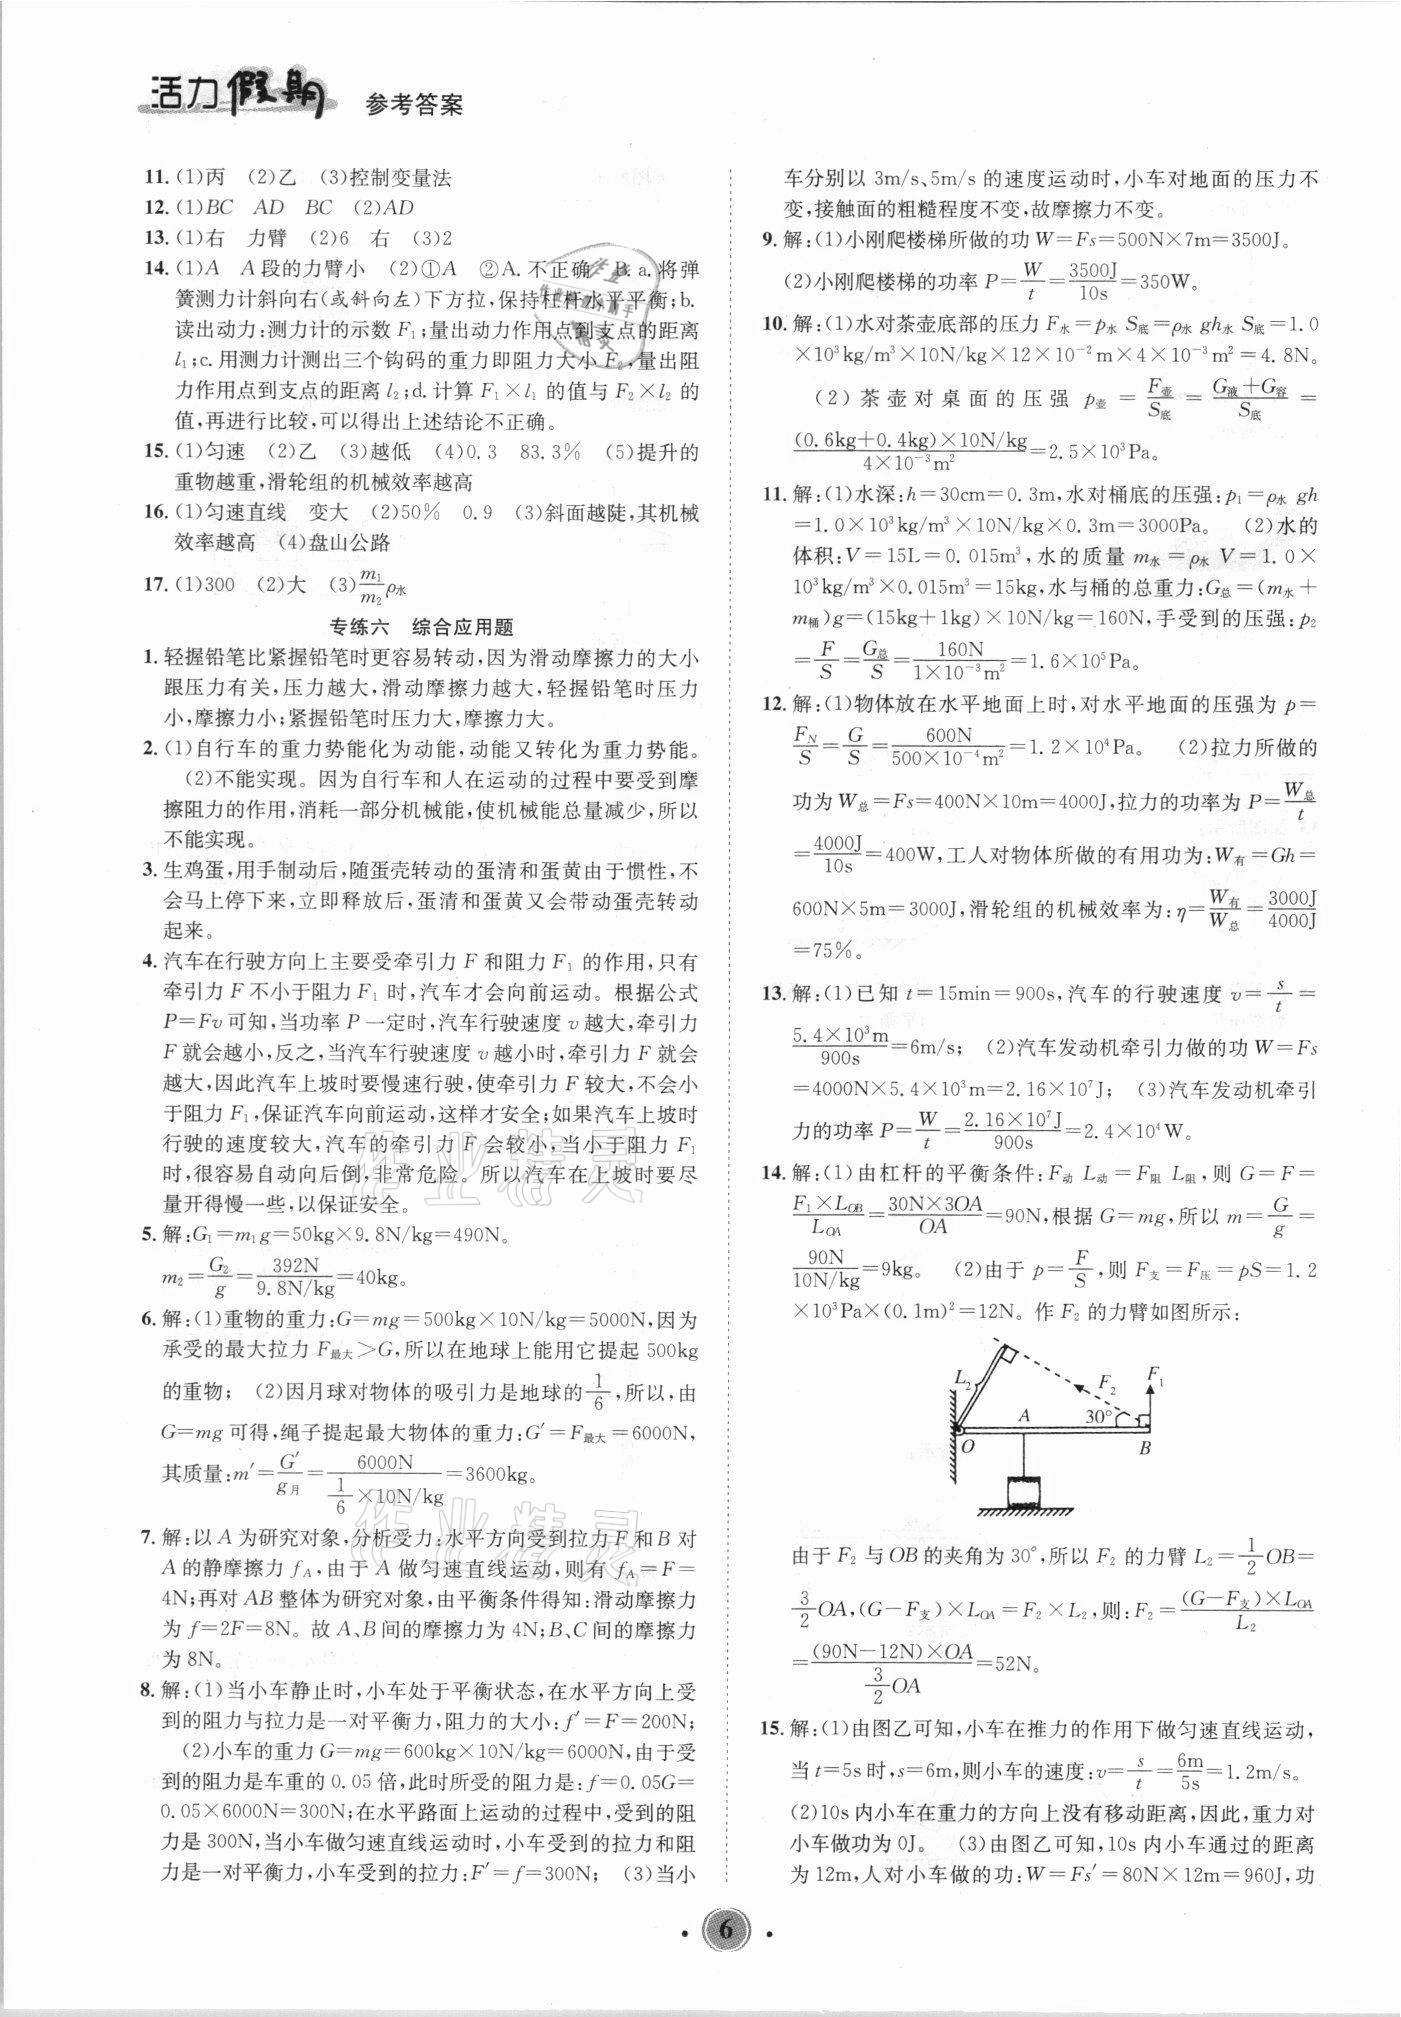 活力假期 参考答案
11. (1)丙 (2)乙 (3)控制变量法
12. (1)BC AD BC (2)AD
13. (1)右 力臂 (2)6 右 (3)2
14. (1)A A段的力臂小 (2)①A ②A. 不正确 B. a. 将弹
簧测力计斜向右(或斜向左)下方拉,保持杠杆水平平衡;b.
读出动力:测力计的示数 F₁;量出动力作用点到支点的距离
l₁;c. 用测力计测出三个钩码的重力即阻力大小 F₂,量出阻
力作用点到支点的距离 l₂;d. 计算 F₁×l₁ 的值与 F₂×l₂ 的
值,再进行比较,可以得出上述结论不正确。
15. (1)匀速 (2)乙 (3)越低 (4)0.3 83.3% (5)提升的
重物越重,滑轮组的机械效率越高
16. (1)匀速直线 变大 (2)50% 0.9 (3)斜面越陡,其机械
效率越高 (4)盘山公路
17. (1)300 (2)大 (3)m₁/m₂ ρ水
专练六 综合应用题
1. 轻握铅笔比紧握铅笔时更容易转动,因为滑动摩擦力的大小
跟压力有关,压力越大,滑动摩擦力越大,轻握铅笔时压力
小,摩擦力小;紧握铅笔时压力大,摩擦力大。
2. (1)自行车的重力势能化为动能,动能又转化为重力势能。
(2)不能实现。因为自行车和人在运动的过程中要受到摩
擦阻力的作用,消耗一部分机械能,使机械能总量减少,所以
不能实现。
3. 生鸡蛋,用手制动后,随蛋壳转动的蛋清和蛋黄由于惯性,不
会马上停下来,立即释放后,蛋清和蛋黄又会带动蛋壳转动
起来。
4. 汽车在行驶方向上主要受牵引力 F 和阻力 F₁ 的作用,只有
牵引力 F 不小于阻力 F₁ 时,汽车才会向前运动。根据公式
P=Fv 可知,当功率 P 一定时,汽车行驶速度 v 越大,牵引力
F 就会越小,反之,当汽车行驶速度 v 越小时,牵引力 F 就会
越大,因此汽车上坡时要慢速行驶,使牵引力 F 较大,不会小
于阻力 F₁,保证汽车向前运动,这样才安全;如果汽车上坡时
行驶的速度较大,汽车的牵引力 F 会较小,当小于阻力 F₁
时,很容易自动向后倒,非常危险。所以汽车在上坡时要尽
量开得慢一些,以保证安全。
5. 解:G₁=m₁g=50kg×9.8N/kg=490N。
m₂=G₂/g=392N/9.8N/kg=40kg。
6. 解:(1)重物的重力:G=mg=500kg×10N/kg=5000N,因为
承受的最大拉力 F最大>G,所以在地球上能用它提起 500kg
的重物; (2)因月球对物体的吸引力是地球的 1/6,所以,由
G=mg 可得,绳子提起最大物体的重力:G′=F最大=6000N,
其质量:m′=G′/g月=6000N/(1/6×10N/kg)=3600kg。
7. 解:以 A 为研究对象,分析受力:水平方向受到拉力 F 和 B 对
A 的静摩擦力 fA,由于 A 做匀速直线运动,则有 fA=F=
4N;再对 AB 整体为研究对象,由平衡条件得知:滑动摩擦力
为 f=2F=8N。故 A、B 间的摩擦力为 4N;B、C 间的摩擦力
为 8N。
8. 解:(1)当小车静止时,小车处于平衡状态,在水平方向上受
到的阻力与拉力是一对平衡力,阻力的大小:f′=F=200N;
(2)小车的重力 G=mg=600kg×10N/kg=6000N,由于受
到的阻力是车重的 0.05 倍,此时所受的阻力是:f=0.05G=
0.05×6000N=300N;在水平路面上运动的过程中,受到的阻
力是 300N,当小车做匀速直线运动时,小车受到的拉力和阻
力是一对平衡力,小车受到的拉力:F′=f=300N; (3)当小
车分别以 3m/s、5m/s 的速度运动时,小车对地面的压力不
变,接触面的粗糙程度不变,故摩擦力不变。
9. 解:(1)小刚爬楼梯所做的功 W=Fs=500N×7m=3500J。
(2)小刚爬楼梯的功率 P=W/t=3500J/10s=350W。
10. 解:(1)水对茶壶底部的压力 F水=p水 S底=ρ水 gh水 S底=1.0
×10³kg/m³×10N/kg×12×10⁻²m×4×10⁻³m²=4.8N。
(2)茶壶对桌面的压强 p壶=F壶/S底=(G液+G容)/S底=
(0.6kg+0.4kg)×10N/kg/4×10⁻³m²=2.5×10³Pa。
11. 解:(1)水深:h=30cm=0.3m,水对桶底的压强:p₁=ρ水 gh
=1.0×10³kg/m³×10N/kg×0.3m=3000Pa。 (2)水的
体积:V=15L=0.015m³,水的质量 m水=ρ水 V=1.0×
10³kg/m³×0.015m³=15kg,水与桶的总重力:G总=(m水+
m桶)g=(15kg+1kg)×10N/kg=160N,手受到的压强:p₂
=F/S=G总/S=160N/1×10⁻³m²=1.6×10⁵Pa。
12. 解:(1)物体放在水平地面上时,对水平地面的压强为 p=
FN/S=G/S=600N/500×10⁻⁴m²=1.2×10⁴Pa。 (2)拉力所做的
功为 W总=Fs=400N×10m=4000J,拉力的功率为 P=W总/t
=4000J/10s=400W,工人对物体所做的有用功为:W有=Gh=
600N×5m=3000J,滑轮组的机械效率为:η=W有/W总=3000J/4000J
=75%。
13. 解:(1)已知 t=15min=900s,汽车的行驶速度 v=s/t=
5.4×10³m/900s=6m/s; (2)汽车发动机牵引力做的功 W=Fs
=4000N×5.4×10³m=2.16×10⁷J; (3)汽车发动机牵引
力的功率 P=W/t=2.16×10⁷J/900s=2.4×10⁴W。
14. 解:(1)由杠杆的平衡条件:F动 L动=F阻 L阻,则 G=F=
F₁×LOB/LOA=30N×3OA/OA=90N,根据 G=mg,所以 m=G/g=
90N/10N/kg=9kg。 (2)由于 p=F/S,则 F支=F压=pS=1.2
×10³Pa×(0.1m)²=12N。作 F₂ 的力臂如图所示:
L₂ F₂ F₁
A 30°
O B
由于 F₂ 与 OB 的夹角为 30°,所以 F₂ 的力臂 L₂=1/2OB=
3/2OA,(G−F支)×LOA=F₂×L₂,则:F₂=(G−F支)×LOA/L₂
=(90N−12N)×OA/(3/2OA)=52N。
15. 解:(1)由图乙可知,小车在推力的作用下做匀速直线运动,
当 t=5s 时,s=6m,则小车的速度:v=s/t=6m/5s=1.2m/s。
(2)10s 内小车在重力的方向上没有移动距离,因此,重力对
小车做功为 0J。 (3)由图乙可知,10s 内小车通过的距离
为 12m,人对小车做的功:W=Fs′=80N×12m=960J,功
· 6 ·
作业精灵
作业精灵